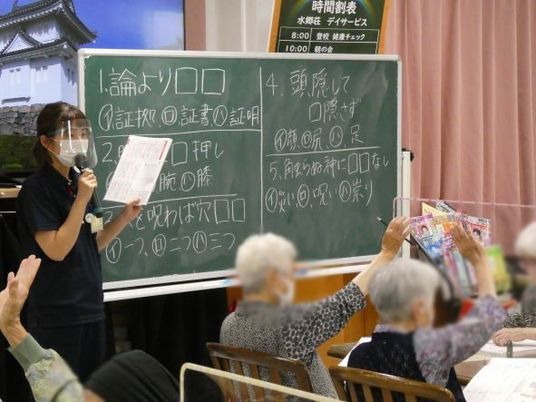 時間割表
水郷荘 デイサービス
8:00 登校 健康チェック
10:00 朝の会
1.論より□□
㋑証拠 ㋺証書 ㋩証明
2.
□押し
腕 ㋩膝
を呪わば穴□□
㋑一つ ㋺二つ ㋩三つ
4.頭隠して
□隠さず
㋑顔 ㋺尻 ㋩足
5.触らぬ神に□□なし
㋺呪い ㋩祟り